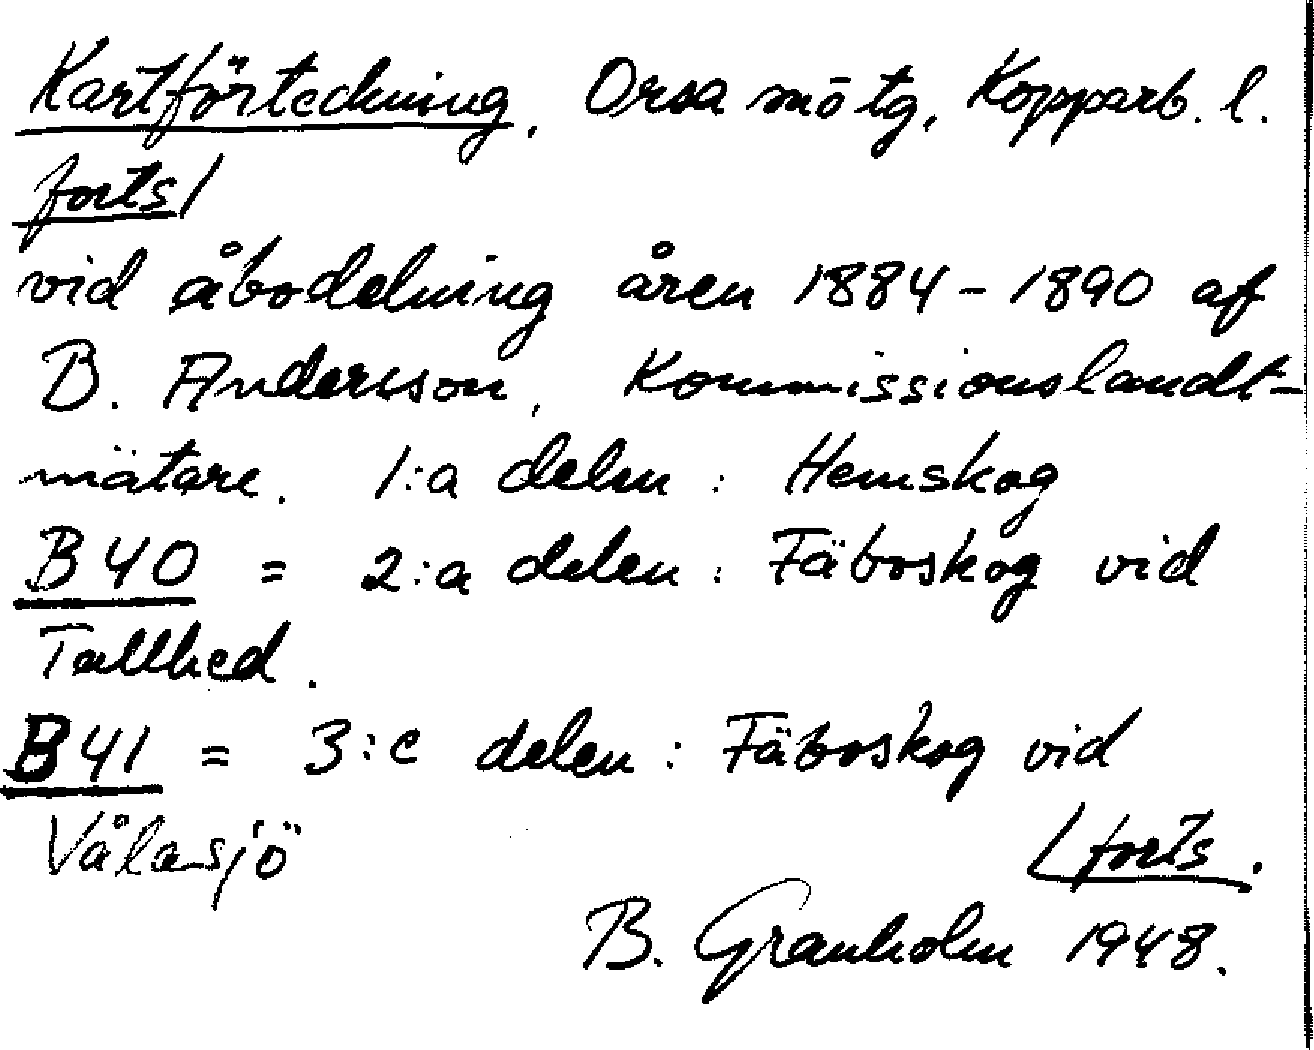 Kartförteckning, Orsa mötg, Kopparb. l.
forts/
vid åbodelning åren 1884-1890 af
B. Andersson, Kommissionslandt-
mätare. 1:a delen: Hemskog
B40 = 2:a delen: Fäboskog vid
Tallhed.
B41 = 3:e delen: Fäboskog vid
Våla sjö
/forts.
B. Granholm 1948.